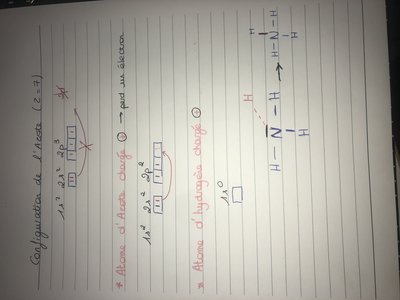 Configuration de l'Azote (Z=7)
1s² 2s² 2p³ 3d
* Atome d'Azote chargé ⊕ → perd un électron
1s² 2s² 2p²
* Atome d'hydrogène chargé ⊕
1s⁰
H H
H — N — H → H — N — H
H H